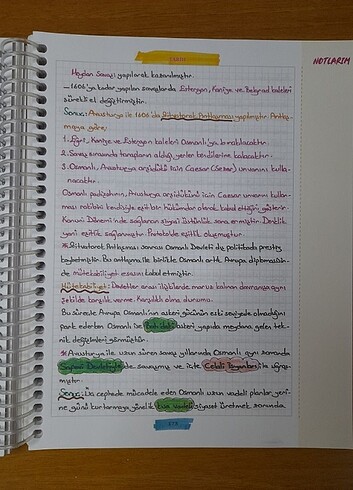 TARİH
NOTLARIM
Meydan Savaşı yapılarak kazanılmıştır.
_ 1606'ya kadar yapılan savaşlarda Estergon, Kanije ve Belgrad kaleleri
sürekli el değiştirmiştir.
Sonuç: Avusturya ile 1606'da Zitvatorok Antlaşması yapılmıştır. Antlaş-
maya göre;
1. Eğri, Kanije ve Estergon kaleleri Osmanlı'ya bırakılacaktır.
2. Savaş sırasında tarafların aldığı yerler kendilerine kalacaktır.
3. Osmanlı, Avusturya arşidükü için Caesar (Sezar) unvanını kulla-
nacaktır.
Osmanlı padişahının, Avusturya arşidükünü için Caesar unvanını kullan-
ması rakibini kendisiyle eşit bir hükümdar olarak kabul ettiğini gösterir.
Kanuni Dönemi'nde sağlanan siyasi üstünlük sona ermiştir. Denklik
yani eşitlik sağlanmıştır. Protokolde eşitlik oluşmuştur.
* Zitvatorok Antlaşması sonrası Osmanlı Devleti dış politikada prestij
kaybetmiştir. Bu antlaşma ile birlikte Osmanlı artık Avrupa diplomasisin-
de mütekabiliyet esasını kabul etmiştir.
Mütekabiliyet: Devletler arası ilişkilerde maruz kalınan davranışa aynı
şekilde karşılık verme. Karşılıklı olma durumu.
Bu süreçte Avrupa Osmanlı'nın askeri gücünün eski seviyede olmadığını
fark ederken Osmanlı ise Batı'daki askeri yapıda meydana gelen tek-
nik değişimleri görmüştür.
* Avusturya ile uzun süren savaş yıllarında Osmanlı aynı zamanda
Safevi Devletiyle de savaşmış ve içte Celali İsyanları ile uğraş-
mıştır.
Sonuç: Üç cephede mücadele eden Osmanlı uzun vadeli planlar yeri-
ne günü kurtarmaya yönelik kısa vadeli siyaset üretmek zorunda